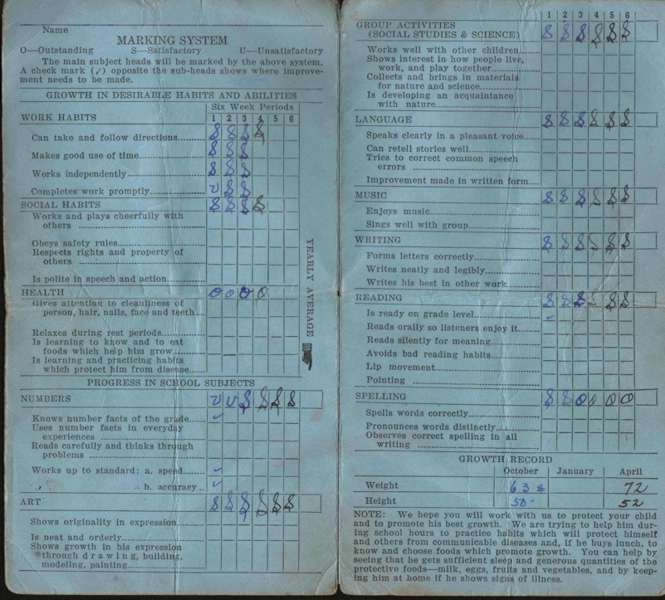 Name
MARKING SYSTEM
O—Outstanding S—Satisfactory U—Unsatisfactory
The main subject heads will be marked by the above system.
A check mark (✓) opposite the sub-heads shows where improve-
ment needs to be made.
GROWTH IN DESIRABLE HABITS AND ABILITIES
Six Week Periods
WORK HABITS 1 2 3 4 5 6
S S S S
Can take and follow directions S S S
Makes good use of time S S S
Works independently S S S
Completes work promptly U S S
SOCIAL HABITS S S S S
Works and plays cheerfully with
others
Obeys safety rules
Respects rights and property of
others
Is polite in speech and action
HEALTH O O O O
Gives attention to cleanliness of
person, hair, nails, face and teeth
Relaxes during rest periods
Is learning to know and to eat
foods which help him grow
Is learning and practicing habits
which protect him from disease
YEARLY AVERAGE
PROGRESS IN SCHOOL SUBJECTS
NUMBERS U U S S S S
Knows number facts of the grade ✓
Uses number facts in everyday
experiences
Reads carefully and thinks through
problems
Works up to standard: a. speed ✓
" b. accuracy ✓
ART S S S S S S
Shows originality in expression
Is neat and orderly
Shows growth in his expression
through drawing, building,
modeling, painting
1 2 3 4 5 6
GROUP ACTIVITIES
(SOCIAL STUDIES & SCIENCE) S S S S S S
Works well with other children
Shows interest in how people live,
work, and play together
Collects and brings in materials
for nature and science
Is developing an acquaintance
with nature
LANGUAGE S S S S S S
Speaks clearly in a pleasant voice
Can retell stories well
Tries to correct common speech
errors
Improvement made in written form
MUSIC S S S S S S
Enjoys music
Sings well with group
WRITING S S S S S S
Forms letters correctly
Writes neatly and legibly
Writes his best in other work
READING S S S S S S
Is ready on grade level ✓
Reads orally so listeners enjoy it
Reads silently for meaning
Avoids bad reading habits
Lip movement
Pointing
SPELLING S S O O O O
Spells words correctly
Pronounces words distinctly
Observes correct spelling in all
writing
GROWTH RECORD
October January April
Weight 63 72
Height 50 52
NOTE: We hope you will work with us to protect your child
and to promote his best growth. We are trying to help him dur-
ing school hours to practice habits which will protect himself
and others from communicable diseases and, if he buys lunch, to
know and choose foods which promote growth. You can help by
seeing that he gets sufficient sleep and generous quantities of the
protective foods—milk, eggs, fruits and vegetables, and by keep-
ing him at home if he shows signs of illness.